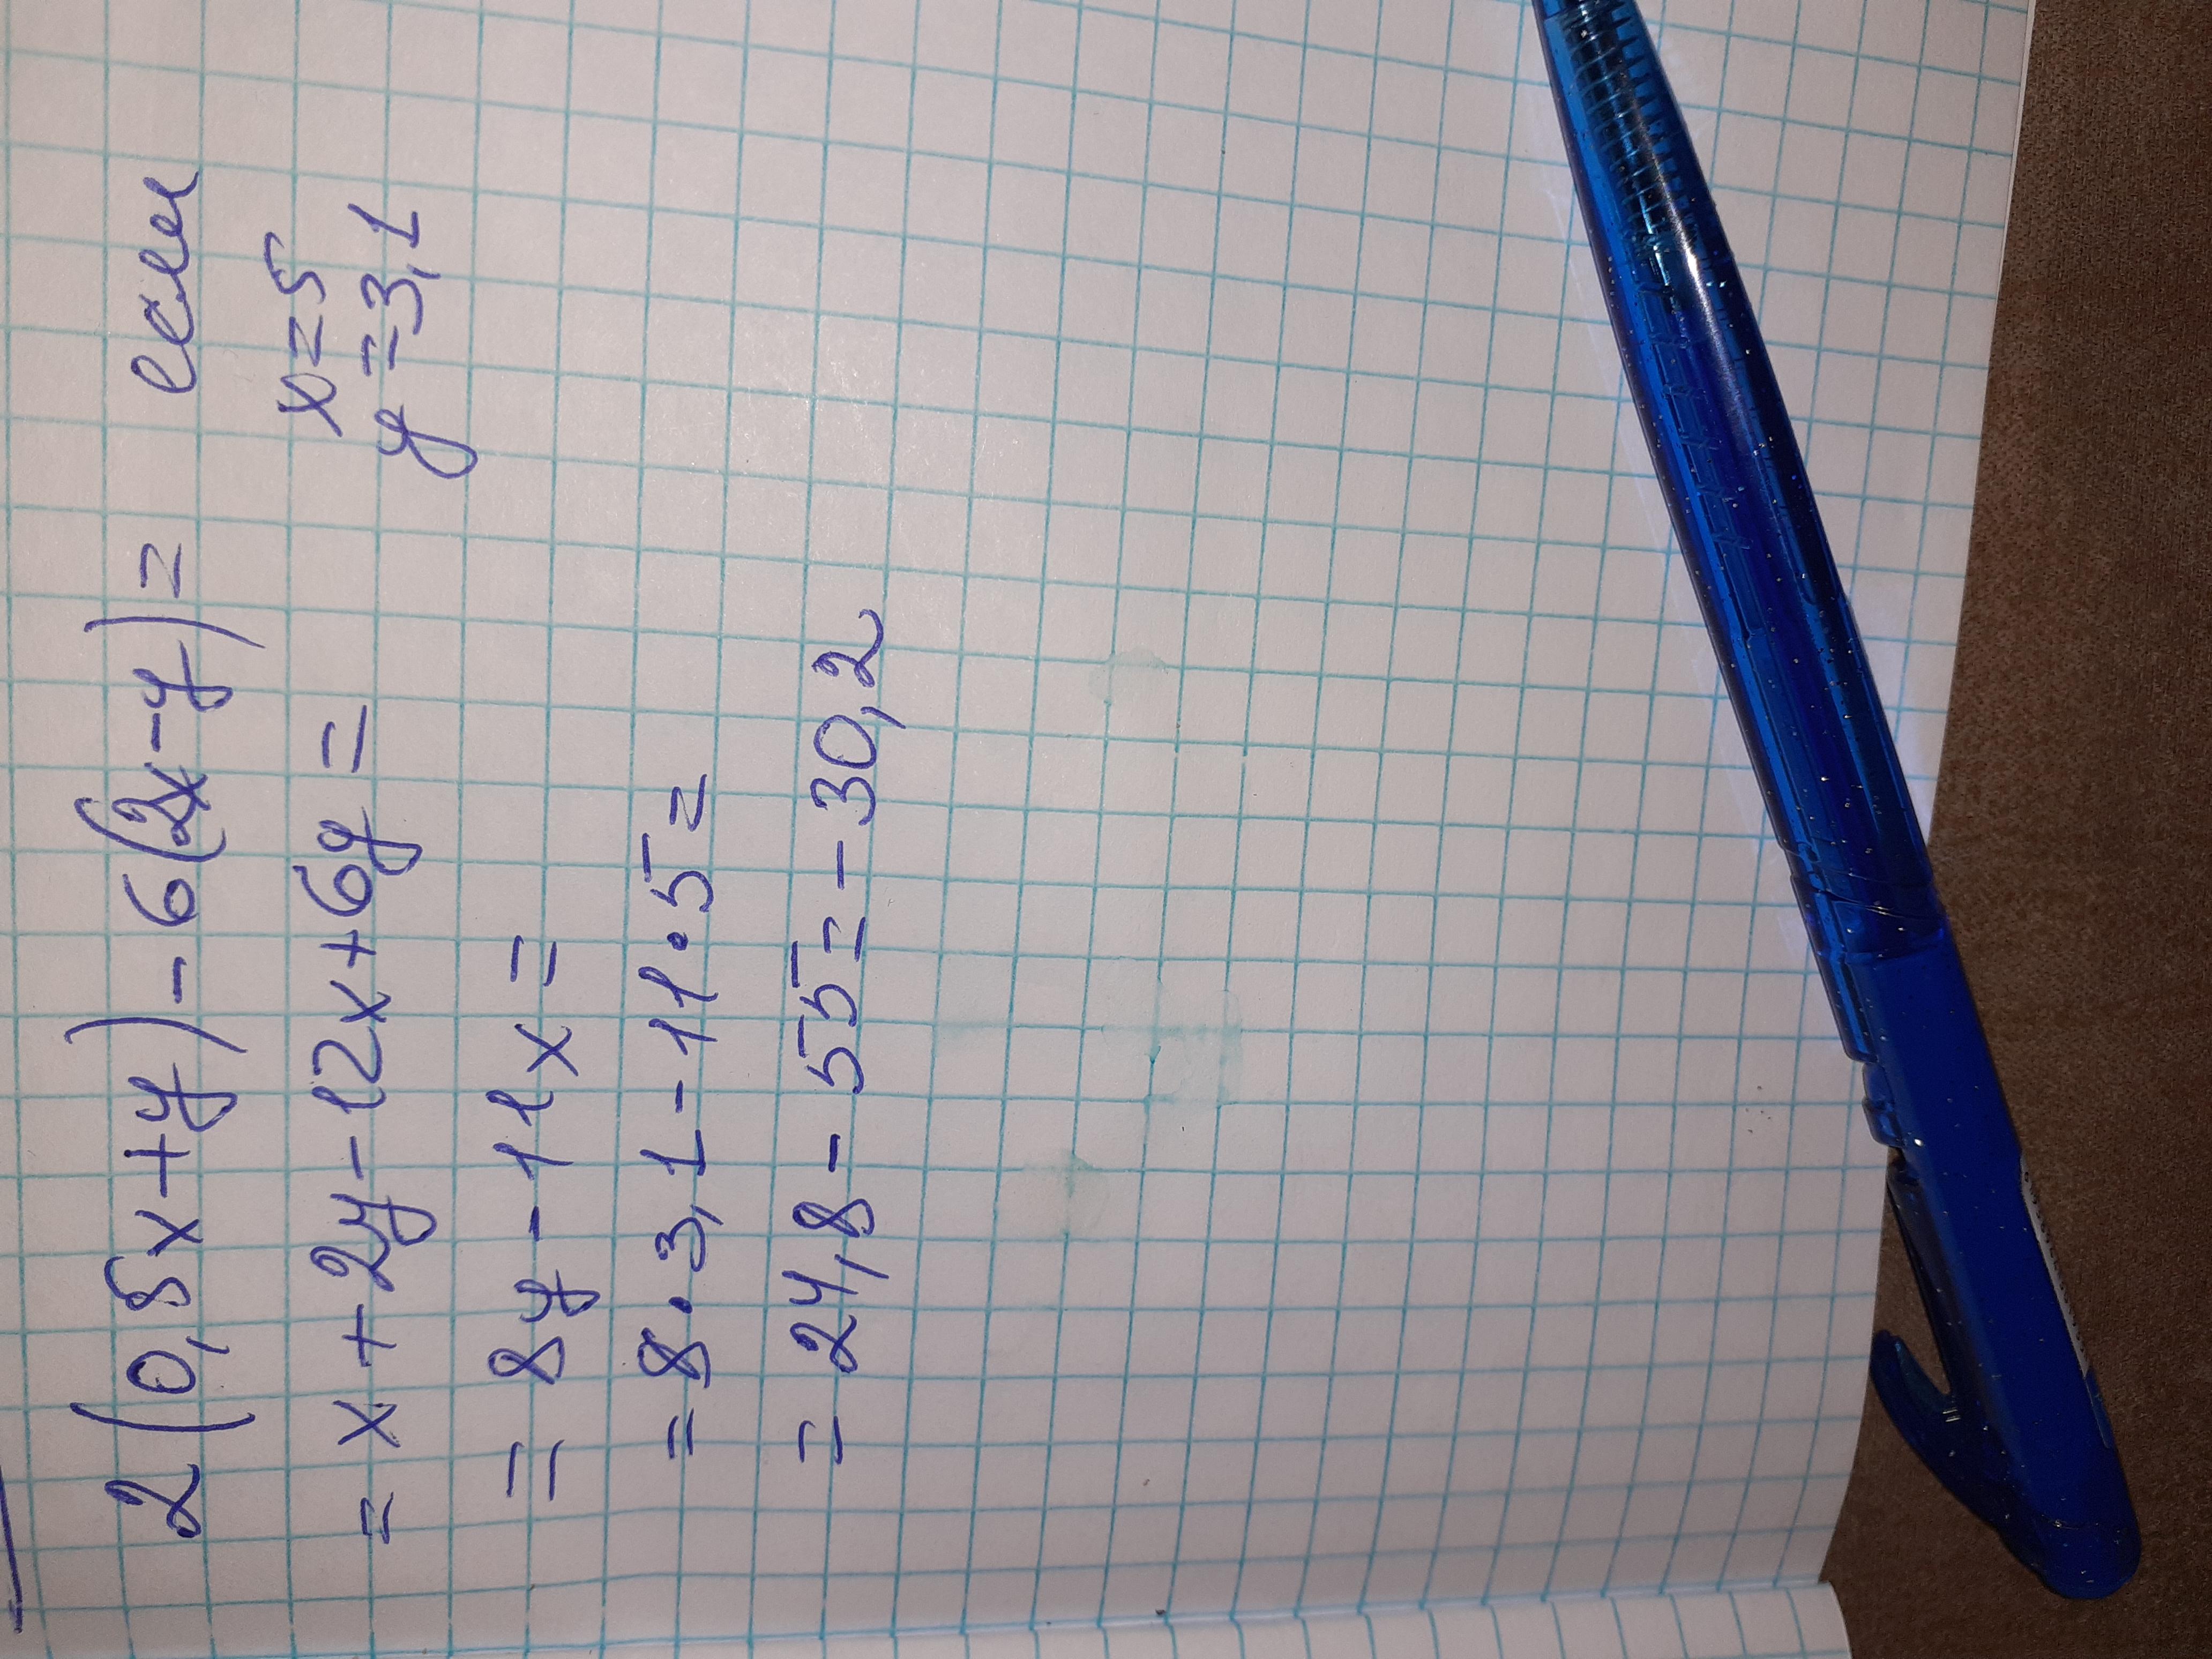 2(0,5x+y)-6(2x-y)= если
x=5
y=3,1
=x+2y-12x+6y=
=8y-11x=
=8•3,1-11•5=
=24,8-55=-30,2